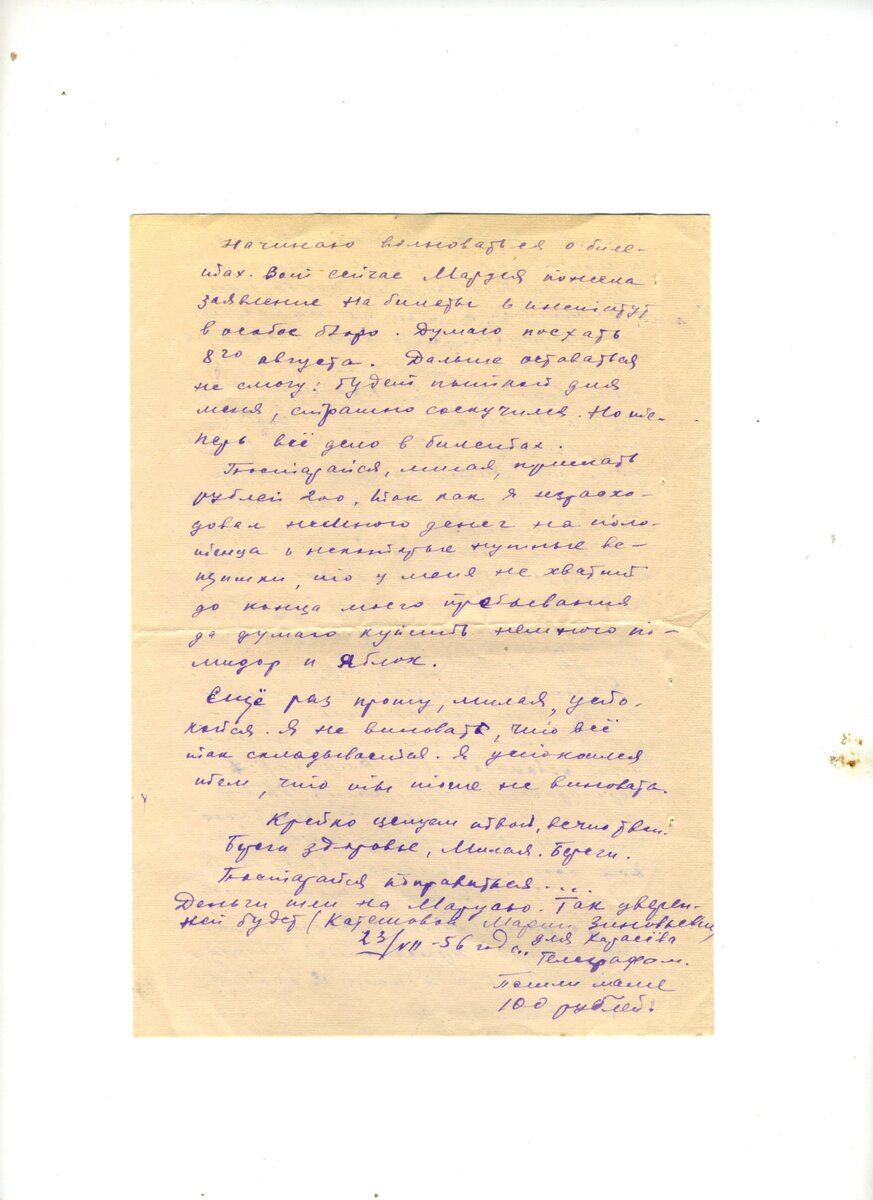 Начинаю волноваться о биле-
тах. Вот сейчас Маруся понесла
заявление на билеты в институт
в особое бюро. Думаю поехать
8го августа. Дальше оставаться
не смогу: будет пыткой для
меня, страшно соскучился. Но те-
перь всё дело в билетах.
Постарайся, милая, прислать
рублей 200, так как я израсхо-
довал немного денег на поло-
тенца и некоторые нужные ве-
щички, то у меня не хватит
до конца моего пребывания
да думаю купить немного по-
мидор и яблок.
Ещё раз прошу, милая, успо-
койся. Я не виноват, что всё
так складывается. Я успокоился
тем, что ты тоже не виновата.
Крепко целуем твой, вечно твой.
Береги здоровье, Милая. Береги.
Постарайся поправиться....
Деньги шли на Марусю. Так уверен-
ней будет (Марии Зиновьевне,
23/VII-56 года. для Карасёва
Телеграфом.
Пошли маме
100 рублей.